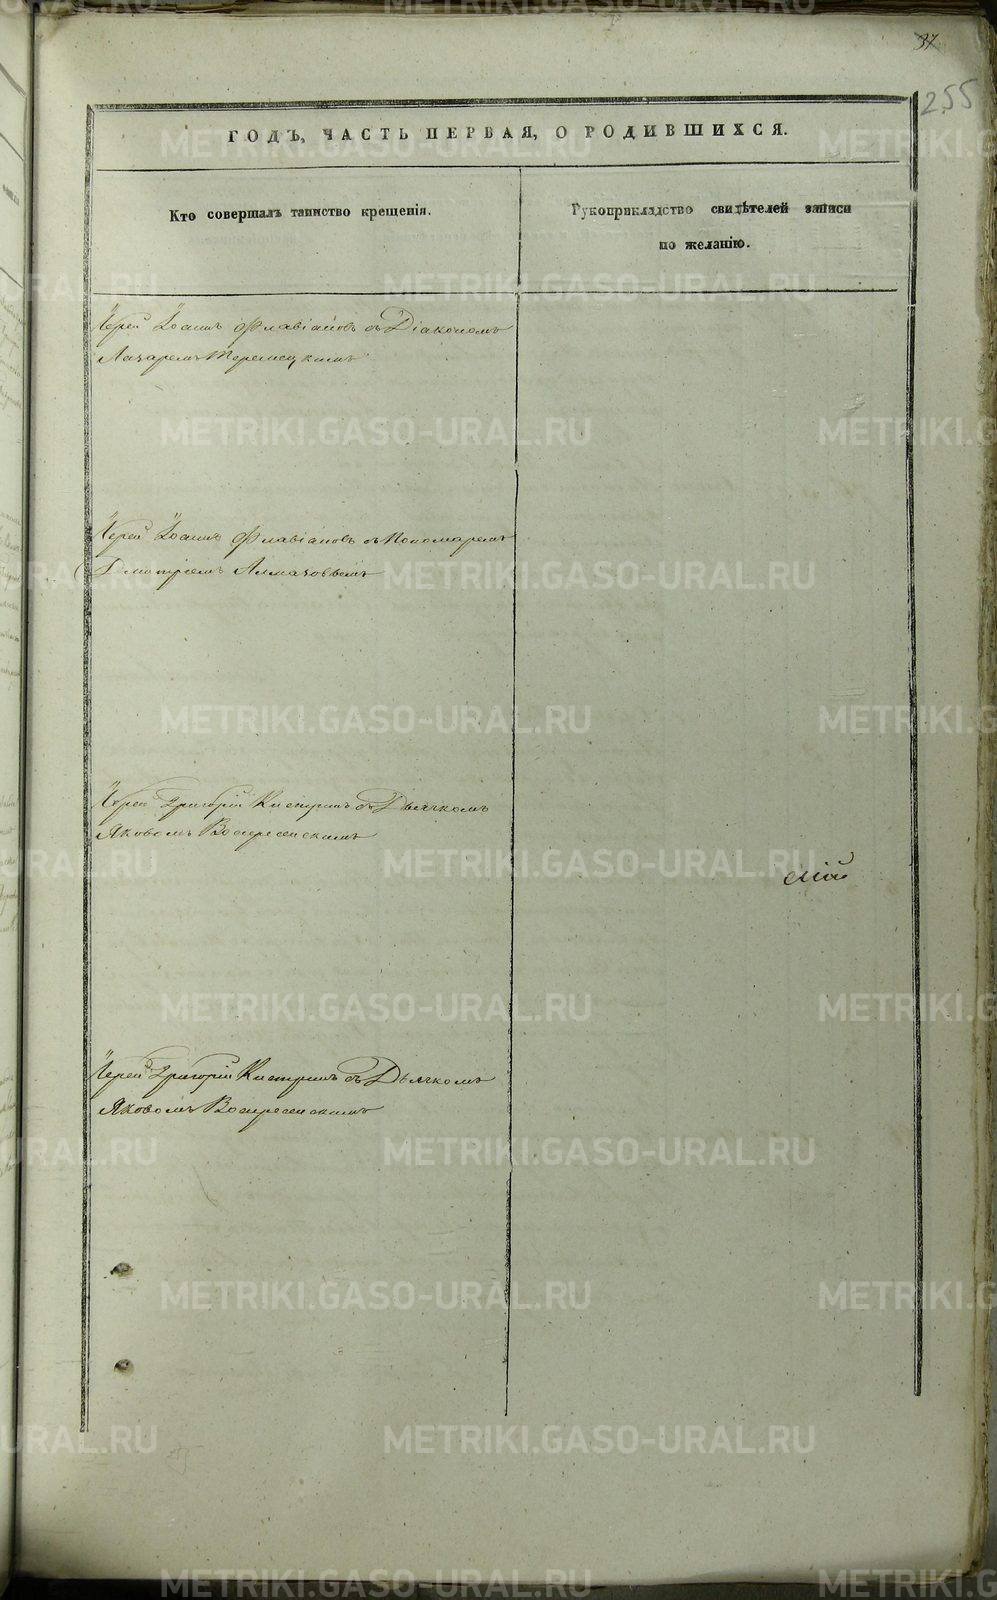 37
255
ГОДЪ, ЧАСТЬ ПЕРВАЯ, О РОДИВШИХСЯ.
Кто совершалъ таинство крещенія.
Рукоприкладство свидѣтелей записи
по желанію.
Іерей Іоаннъ Флавіановъ съ Діакономъ
Лазаремъ
Іерей Іоаннъ Флавіановъ съ Пономаремъ
Дмитріемъ Алмазовымъ
Іерей Григорій съ Дьячкомъ
Яковомъ Воскресенскимъ
Іерей Григорій съ Дьячкомъ
Яковомъ Воскресенскимъ
METRIKI.GASO-URAL.RU